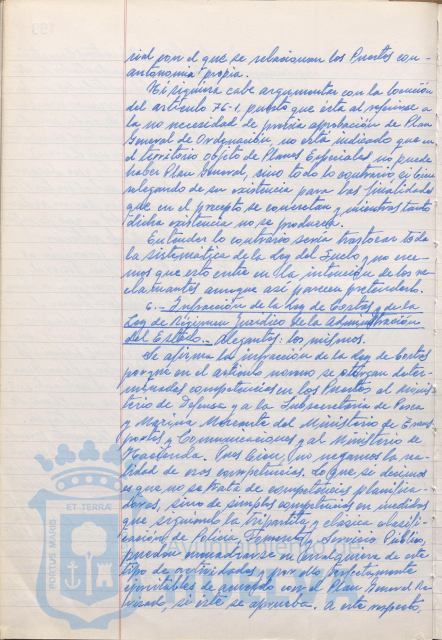 rial por el que se relacionan los Puertos con
autonomía propia.
Ni siquiera cabe argumentar con la locución
del artículo 76-1, puesto que ésta al referirse a
la no necesidad de previa aprobación de Plan
General de Ordenación, no está indicando que en
el territorio objeto de Planes Especiales no puede
haber Plan General, sino todo lo contrario,
relegando de su existencia para las finalidades
que en el precepto se concretan y mientras tanto
dicha existencia no se produzca.
Entender lo contrario sería trastocar toda
la sistemática de la Ley del Suelo y no cree-
mos que esto entre en la intención de los re-
clamantes aunque así parecen pretenderlo.
6.- Infracción de la Ley de Costas y de la
Ley de Régimen Jurídico de la Administración
del Estado.- Alegantes: los mismos.
Se afirma la infracción de la Ley de Costas
porque en el artículo noveno se otorgan deter-
minadas competencias en los Puertos al Minis-
terio de Defensa y a la Subsecretaría de Pesca
y Marina Mercante del Ministerio de Trans-
portes y Comunicaciones y al Ministerio de
Hacienda. Pues bien, no negamos la rea-
lidad de esas competencias. Lo que si decimos
es que no se trata de competencias planifica-
doras, sino de simples competencias
que siguiendo la tripartita y clásica clasifi-
cación de Policía, Fomento y Servicio Público,
pueden encuadrarse en cualquiera de este
tipo de actividades y por ello perfectamente
ejercitables de acuerdo con el Plan General Re-
visado, si éste se aprueba. A este respecto,
PORTUS MARIS ET TERRÆ